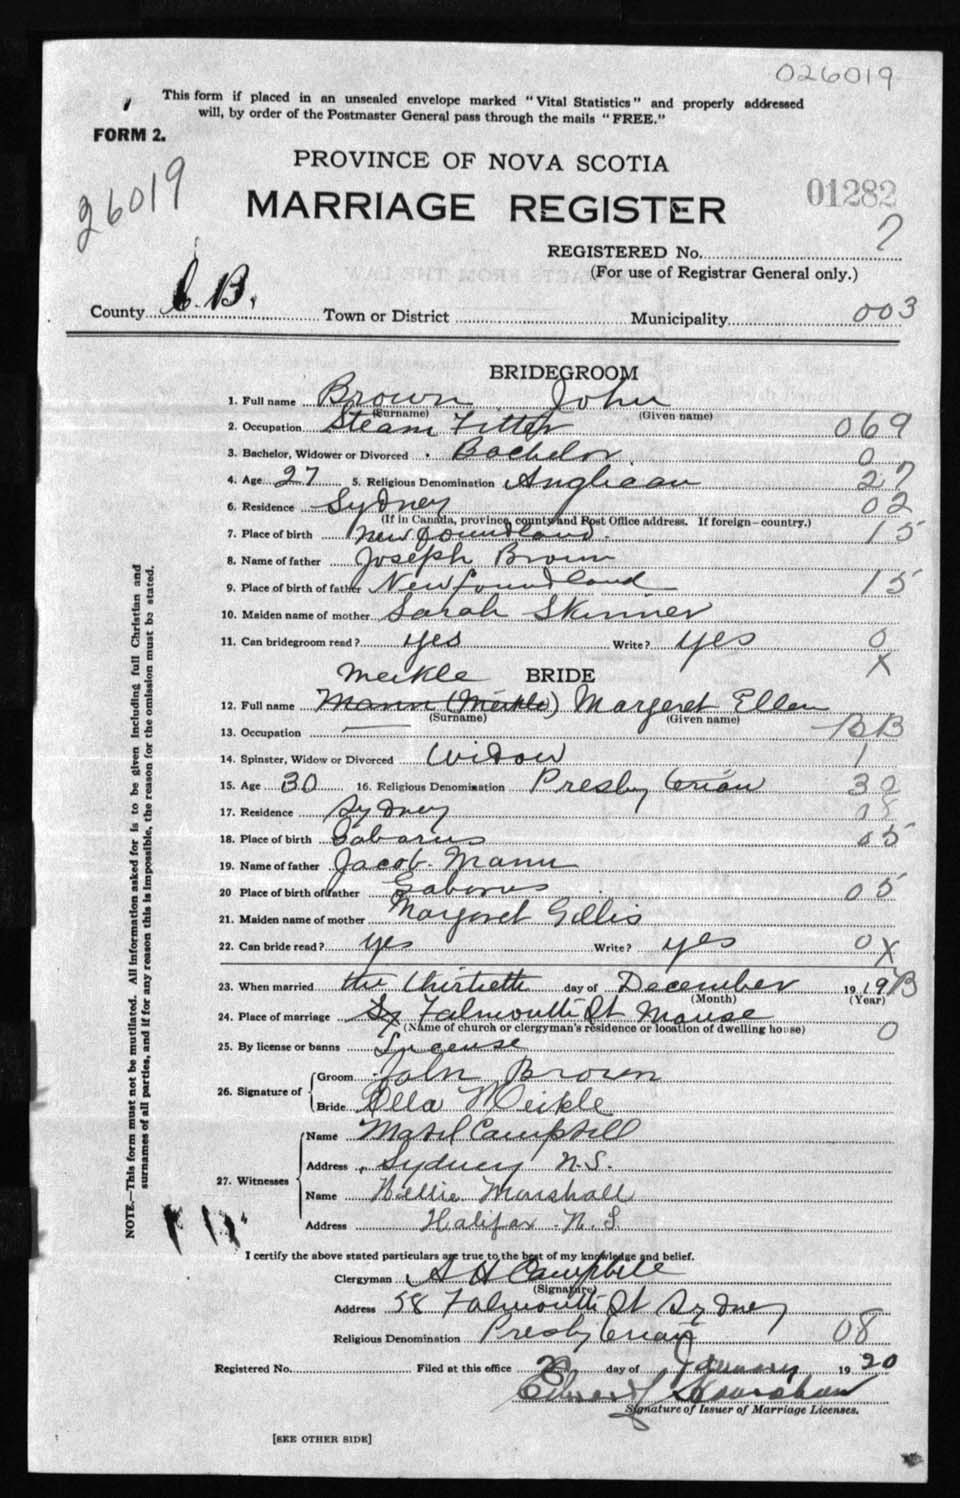 026019
This form if placed in an unsealed envelope marked "Vital Statistics" and properly addressed
will, by order of the Postmaster General pass through the mails "FREE."
FORM 2.
26019
PROVINCE OF NOVA SCOTIA
01282
MARRIAGE REGISTER
REGISTERED No. 7
(For use of Registrar General only.)
County C. B. Town or District Municipality 003
BRIDEGROOM
1. Full name Brown John
(Surname) (Given name)
2. Occupation Steam Fitter 069
3. Bachelor, Widower or Divorced Bachelor. 0
4. Age 27 5. Religious Denomination Anglican 27
6. Residence Sydney 02
(If in Canada, province, county and Post Office address. If foreign—country.)
7. Place of birth Newfoundland. 15
8. Name of father Joseph Brown
9. Place of birth of father Newfoundland 15
10. Maiden name of mother Sarah Skinner
11. Can bridegroom read? yes Write? yes 0
X
Meikle BRIDE
12. Full name Mann (Meikle) Margaret Ellen
(Surname) (Given name)
13. Occupation BB
14. Spinster, Widow or Divorced Widow 1
15. Age 30 16. Religious Denomination Presbyterian 30
17. Residence Sydney 08
18. Place of birth Gabarus 05
19. Name of father Jacob Mann
20 Place of birth of father Gabarus 05
21. Maiden name of mother Margaret Gillis
22. Can bride read? yes Write? yes 0
X
23. When married the thirtieth day of December 1919 B
(Month) (Year)
24. Place of marriage Falmouth St Manse 0
(Name of church or clergyman's residence or location of dwelling house)
25. By license or banns License
26. Signature of Groom John Brown
Bride Ella Meikle
27. Witnesses Name Mabel Campbell
Address Sydney N.S.
Name Nellie Marshall
Address Halifax N.S.
I certify the above stated particulars are true to the best of my knowledge and belief.
Clergyman A H Campbell
(Signature)
Address 58 Falmouth St Sydney
Religious Denomination Presbyterian 08
Registered No. Filed at this office day of January 1920
Edward
Signature of Issuer of Marriage Licenses.
[SEE OTHER SIDE]
NOTE.—This form must not be mutilated. All information asked for is to be given including full Christian and
surnames of all parties, and if for any reason this is impossible, the reason for the omission must be stated.